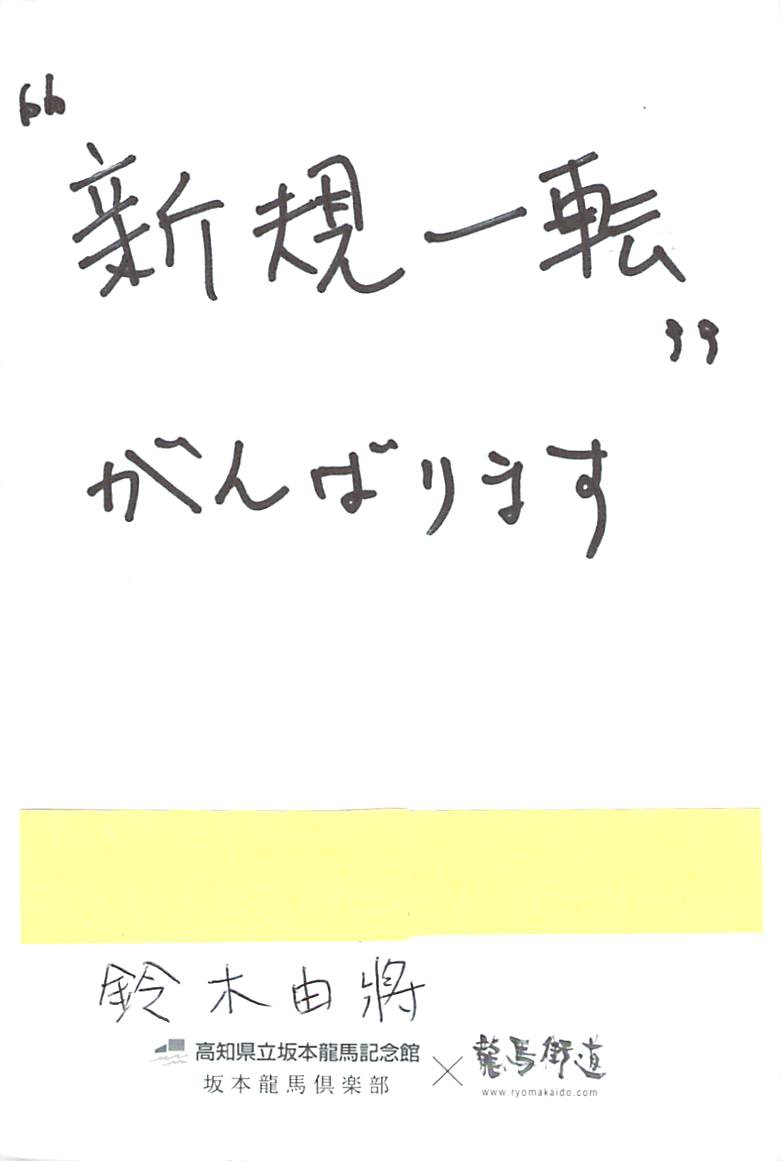 “新規一転”
がんばります
鈴木由将
高知県立坂本龍馬記念館
坂本龍馬倶楽部
×
龍馬街道
www.ryomakaido.com